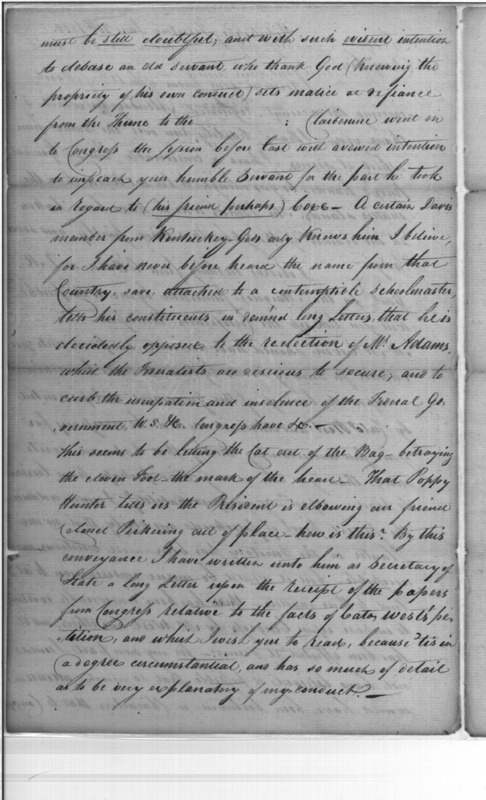 must be still doubtful; and with such evident intention
to debase an old servant, who thank God (knowing the
propriety of his own conduct) sets malice at defiance
from the Throne to the : Claiborne went on
to Congress the session before last with avowed intention
to impeach your humble Servant for the part he took
in regard to (his friend perhaps) Coxe – A certain Davis
mander from Kentuckey – Gods only knows him I believe,
for I have never before heard the name from that
Country, save attached to a contemptible schoolmaster,
tells his constituents in round long Letters, that he is
decidedly opposed to the reelection of Mr. Adams,
whom the Feneralists are desirous to secure, and to
curb the usurpation and insolence of the Federal Go
vernment, U. S. &c. Congress have &c. –
This seems to be letting the Cat out of the Bag – betraying
the cloven Foot – the mark of the beast – That Poppy
Hunter tells us the President is elbowing our friend
Colonel Pickering out of place – how is this? By this
conveyance I have written unto him as Secretary of
State a long Letter upon the receipt of the papers
from Congress relative to the facts of Cato West's pe-
tition, and which I wish you to read, because 'tis in
a degree circumstantial, and has so much of detail
as to be very explanatory of my conduct. —